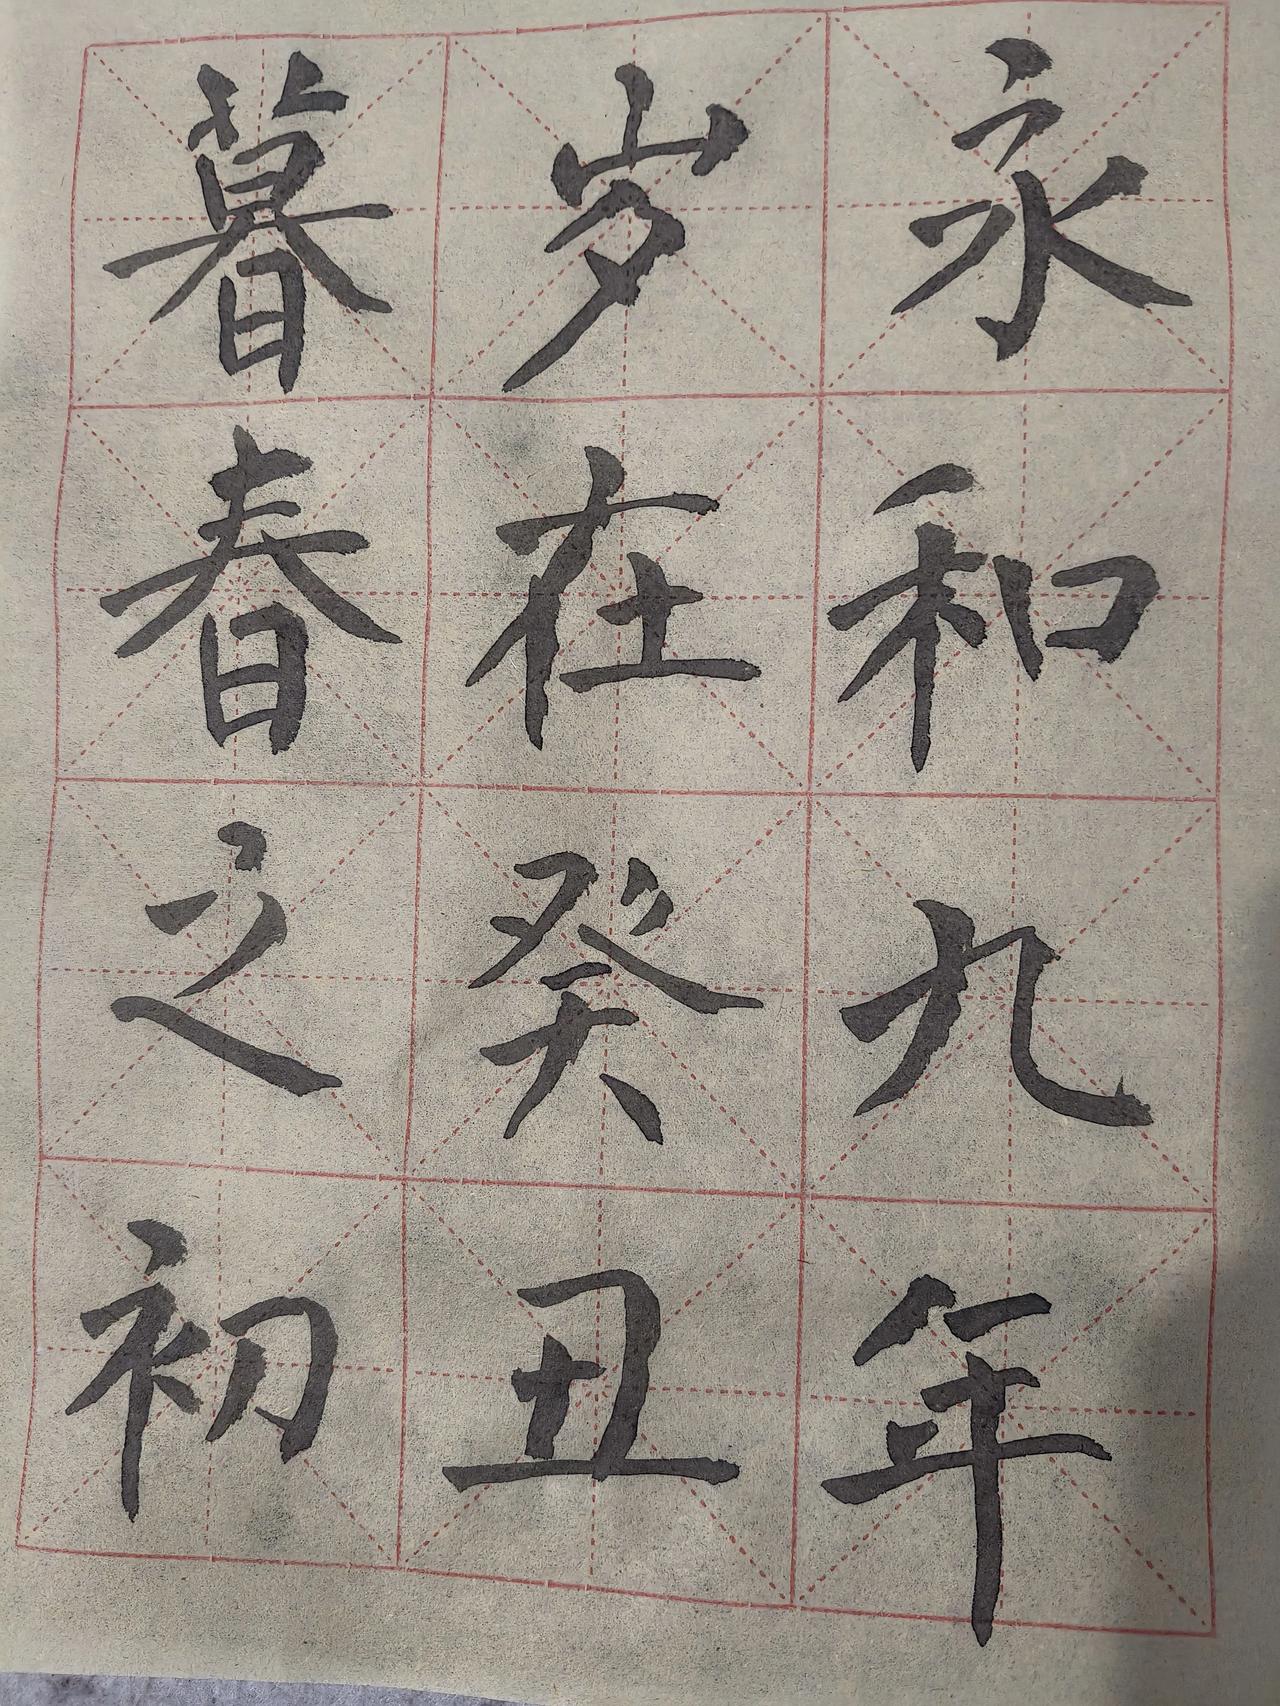 永和九年
岁在癸丑
暮春之初